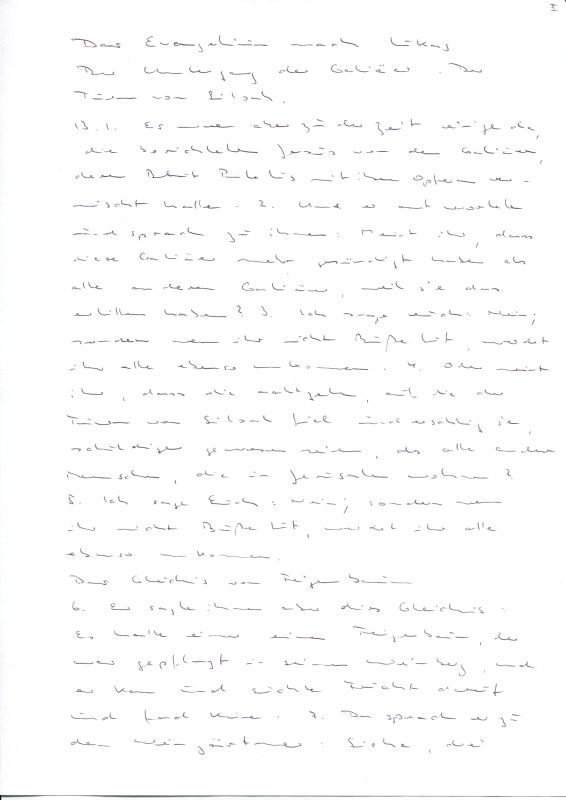 I
Das Evangelium nach Lukas
Der Untergang der Galiläer. Der
Turm von Siloah.
13.1. Es waren aber zu der Zeit einige da,
die berichteten Jesus von den Galiläern,
deren Blut Pilatus mit ihren Opfern ver-
mischt hatte. 2. Und er antwortete
und sprach zu ihnen: Meint ihr, dass
diese Galiläer mehr gesündigt haben als
alle anderen Galiläer, weil sie das
erlitten haben? 3. Ich sage euch: Nein;
sondern wenn ihr nicht Buße tut, werdet
ihr alle ebenso umkommen. 4. Oder meint
ihr, dass die achtzehn, auf die der
Turm von Siloah fiel und erschlug sie,
schuldiger gewesen seien, als alle andern
Menschen, die in Jerusalem wohnen?
5. Ich sage Euch: Nein; sondern wenn
ihr nicht Buße tut, werdet ihr alle
ebenso umkommen.
Das Gleichnis vom Feigenbaum
6. Er sagte ihnen aber dies Gleichnis:
Es hatte einer einen Feigenbaum, der
war gepflanzt in seinem Weinberg, und
er kam und suchte Frucht darauf
und fand keine. 7. Da sprach er zu
dem Weingärtner: Siehe, drei